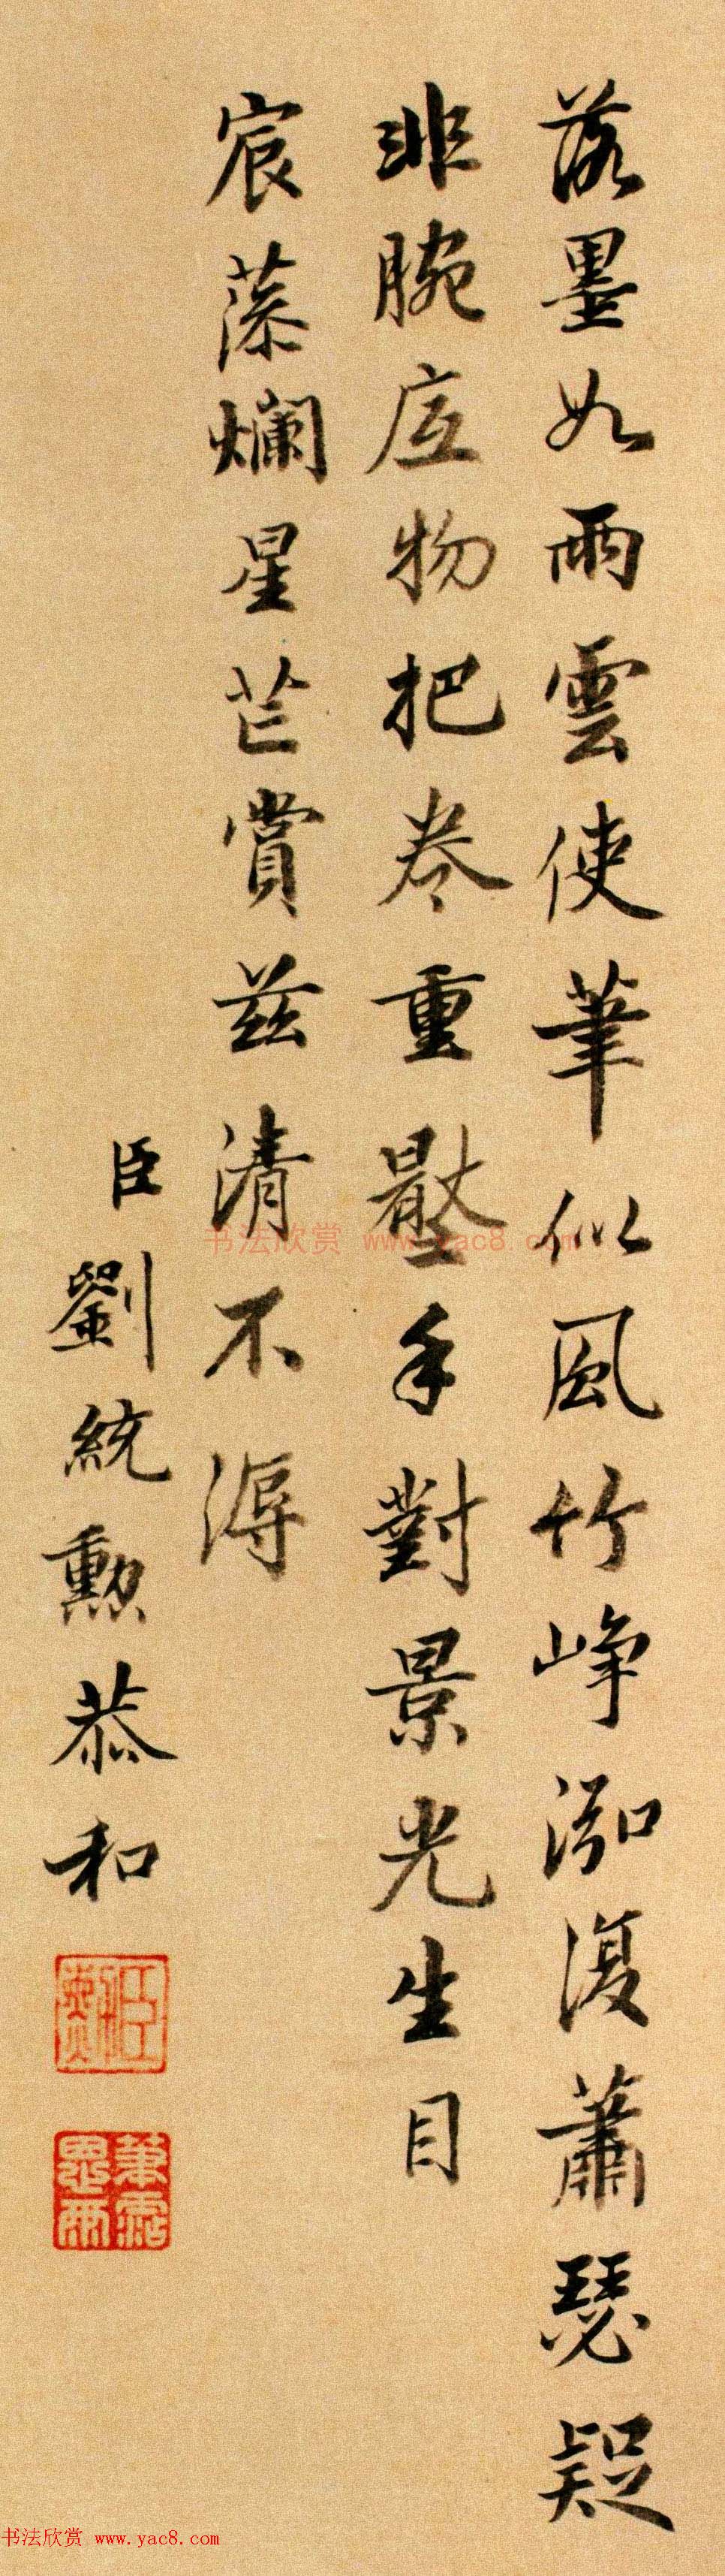 落墨如雨雲使筆似風竹崢泓復蕭瑟疑
非腕底物把卷重擧手對景光生目
宸藻爛星芒賞茲清不溽
臣劉統勳恭和
书法欣赏 www.yac8.com
书法欣赏 www.yac8.com